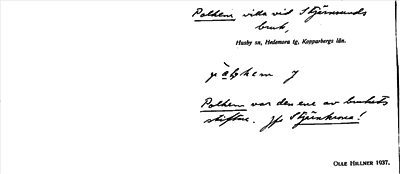 Polhem, villa vid Stjernsunds
bruk,
Husby sn, Hedemora tg, Kopparbergs län.
Polhem var den ene av brukets
stiftare. Jfr Stjärnkrona!
OLLE HILLNER 1937.